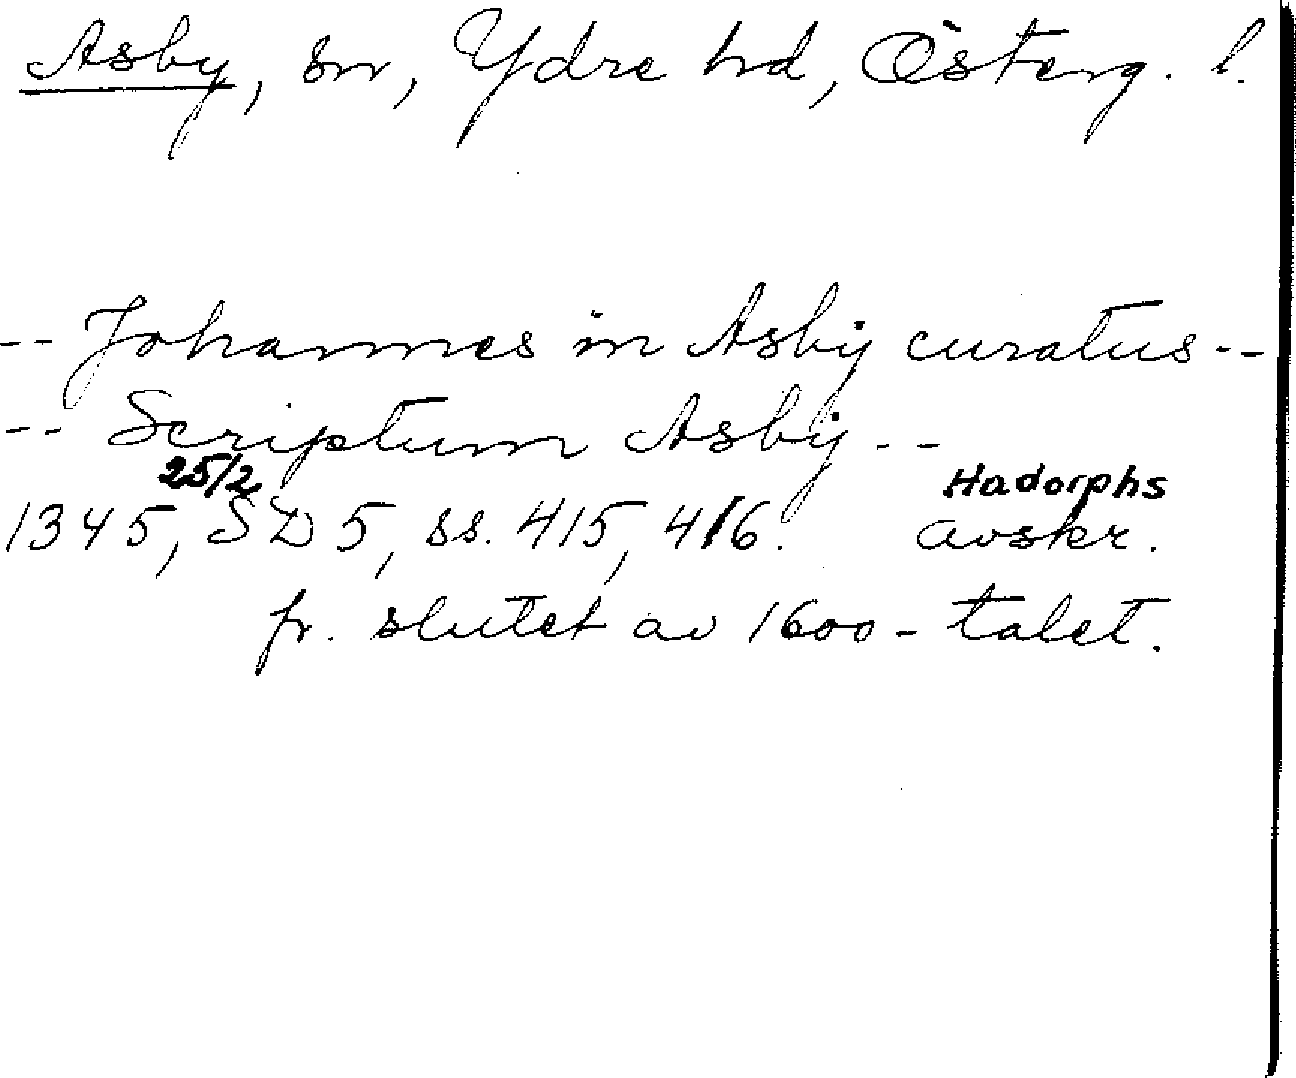 Asby, sn, Ydre hd, Österg. l.
-- Johannes in Asbÿ curatus --
-- Scriptum Asbÿ --
25/2 Hadorphs
1345, SD 5, ss. 415, 416. avskr.
fr. slutet av 1600-talet.